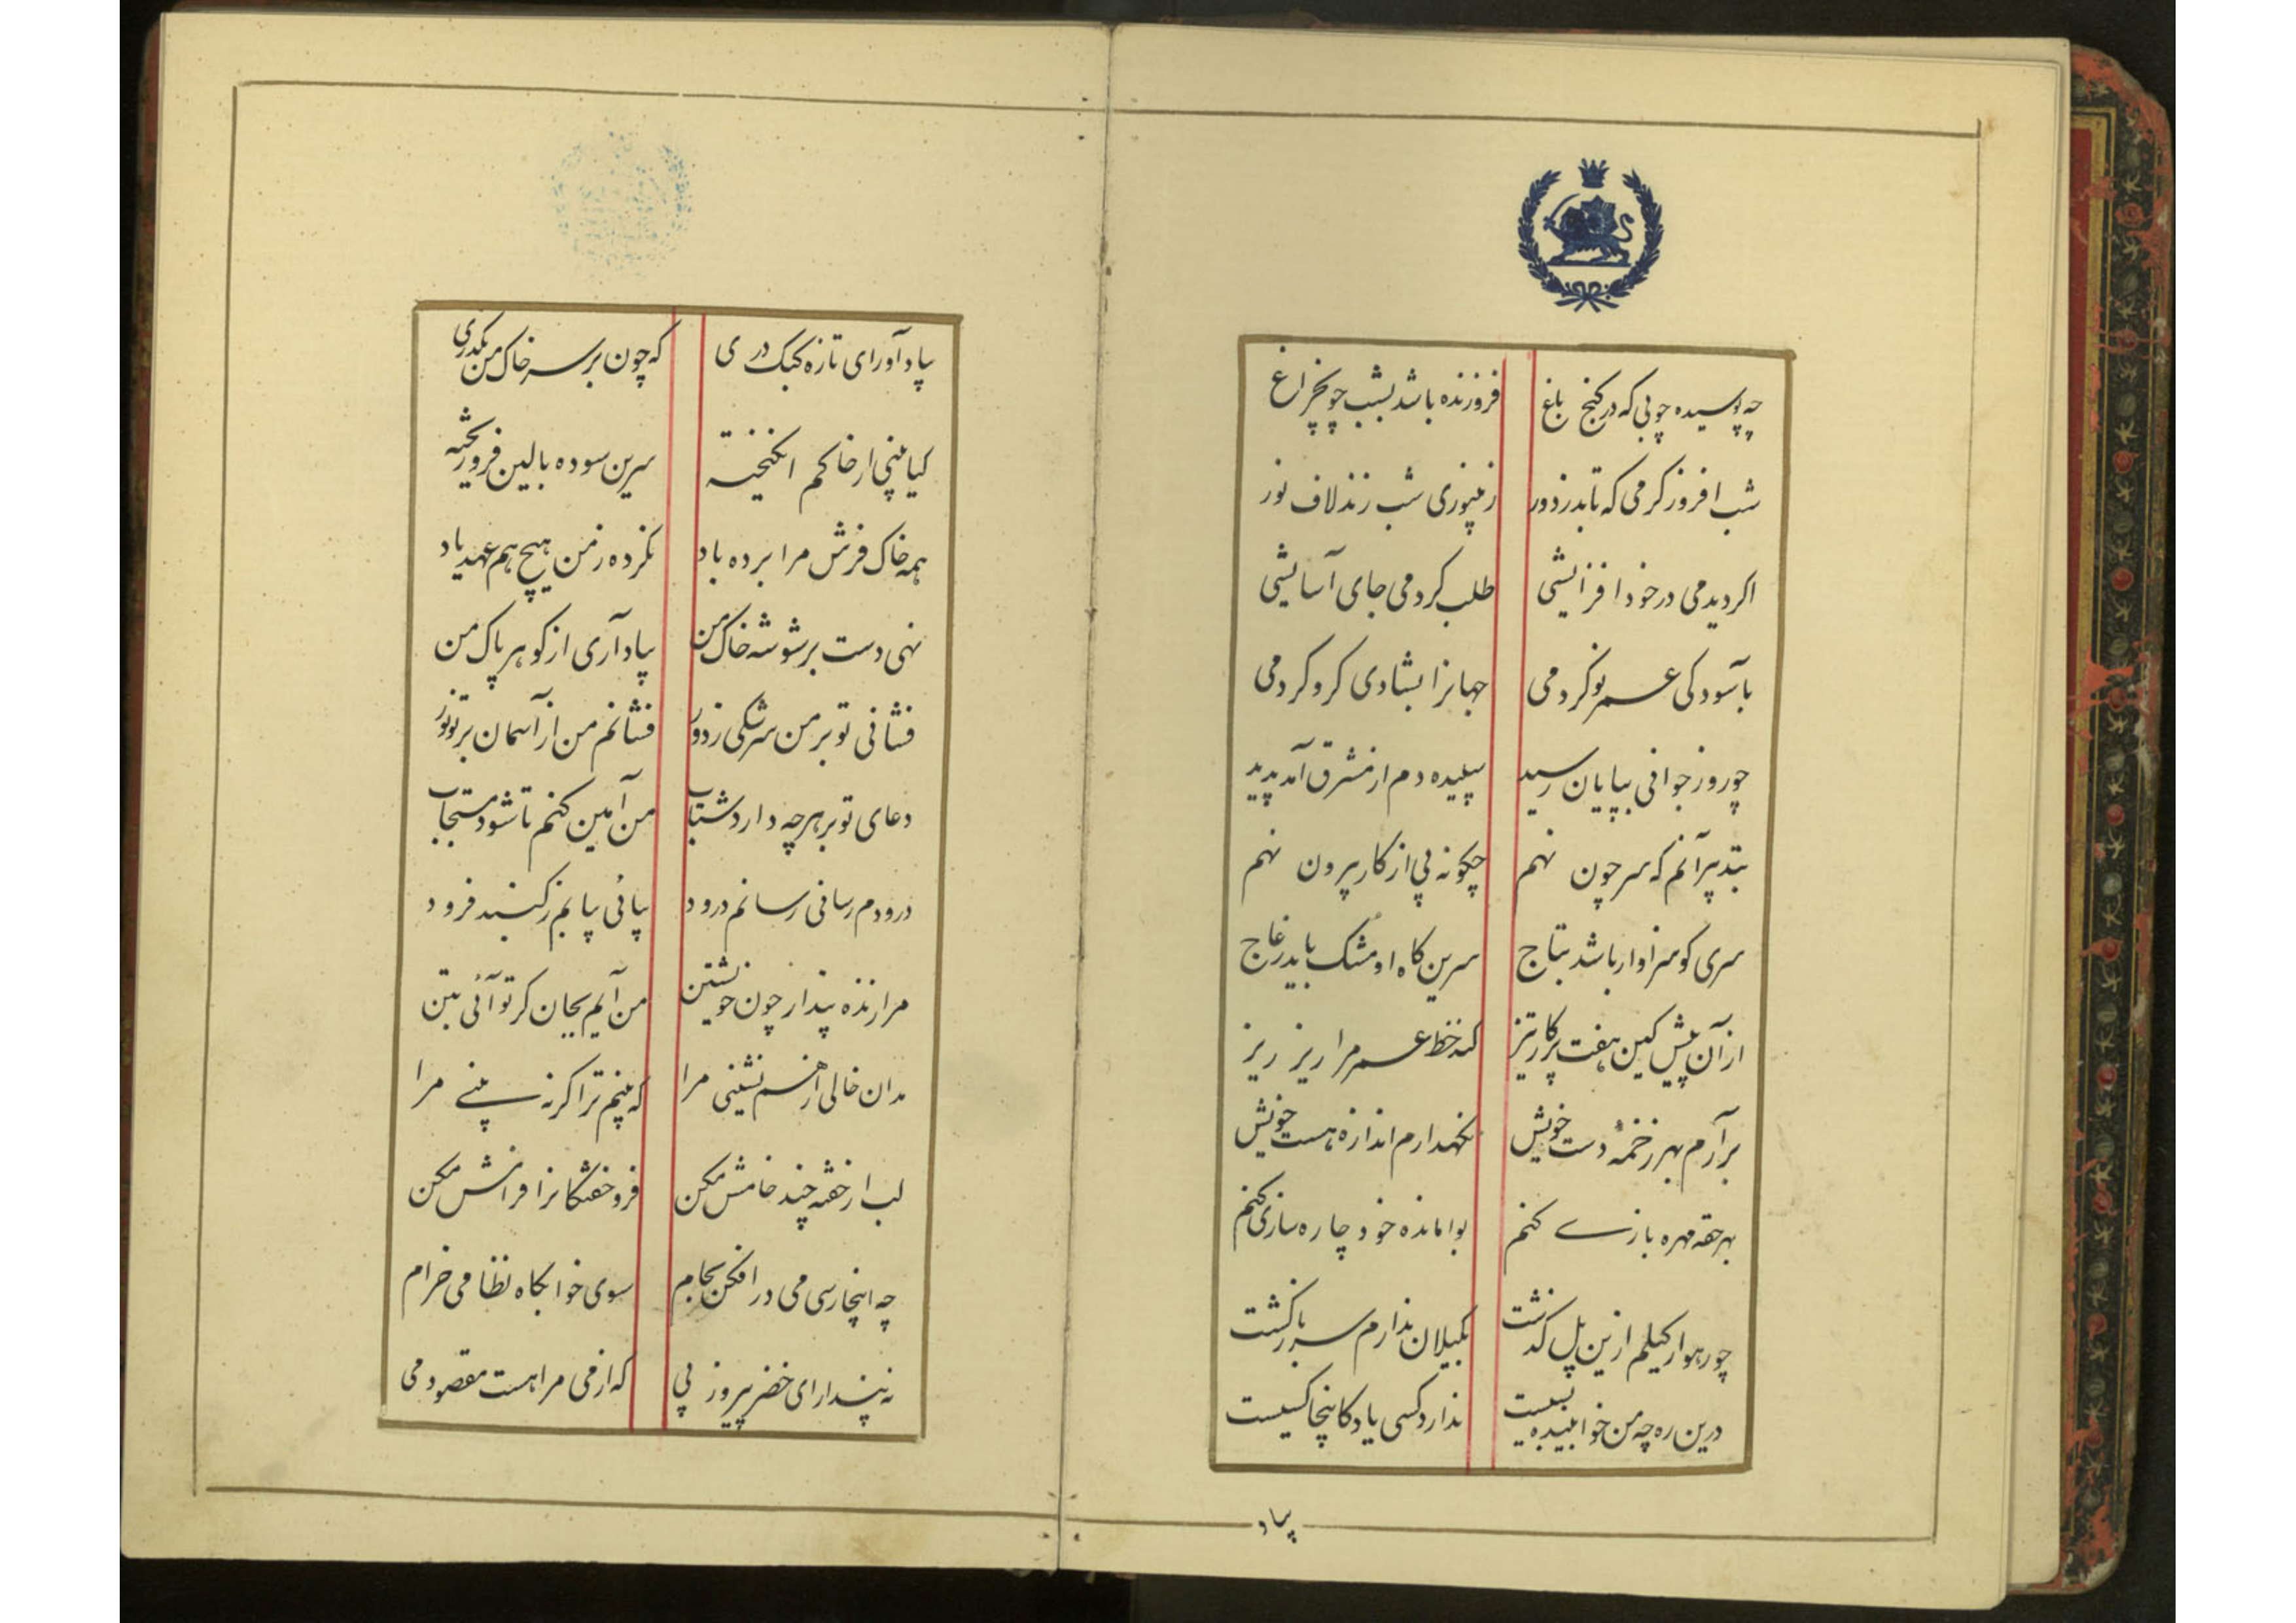 چه پوسیده چوبی که در کنج باغ فروزنده باشد بشب چونچراغ
شب افروز کرمی که تابد ز دور ز بی‌نوری شب زند لاف نور
اکر دیدمی در خود افزایشی طلب کردمی جای آسایشی
بآسودکی عمر نو کردمی جهانرا بشادی کرو کردمی
چو روز جوانی بپایان رسید سپیده دم از مشرق آمد پدید
بتدبیر آنم که سر چون نهم چکونه پی از کار بیرون نهم
سری کو سزاوار باشد بتاج سرین کاه او مشک باید ز عاج
از آن پیش کین هفت پرکار تیز کند خط عمر مرا ریز ریز
برآرم بهر زخمهٔ دست خویش نکهدارم اندازه هست خویش
بهر حقه مهره بازی کنم بوامانده خود چاره سازی کنم
چو رهوار کیلم ازین پل کذشت بکیلان ندارم سر بازکشت
درین ره چه من خوابنیده بسیست ندارد کسی یاد کانجا کسیست
بیاد
بیاد آور ای تازه کبک دری که چون بر سر خاک من بکذری
کیا بینی از خاکم انکیخته سرین سوده بالین فرو ریخته
همه خاک فرش مرا برده باد نکرده ز من هیچ هم عهد یاد
نهی دست بر شوشه خاک من بیاد آری از کوهر پاک من
فشانی تو بر من سرشکی ز دور فشانم من از آسمان بر تو نور
دعای تو بر هرچه دارد شتاب من آمین کنم تا شود مستجاب
درودم رسانی رسانم درود بیائی بیایم ز کنبد فرود
مرا زنده پندار چون خویشتن من آیم بجان کر تو آئی بتن
مدان خالی از هم نشینی مرا که بینم ترا کر نه بینی مرا
لب از خفته چند خامش مکن فرو خفتکانرا فرامش مکن
چه اینجا رسی می در افکن بجام سوی خوابکاه نظامی خرام
نه پندار ای خضر پیروز پی که از می مرا هست مقصود می